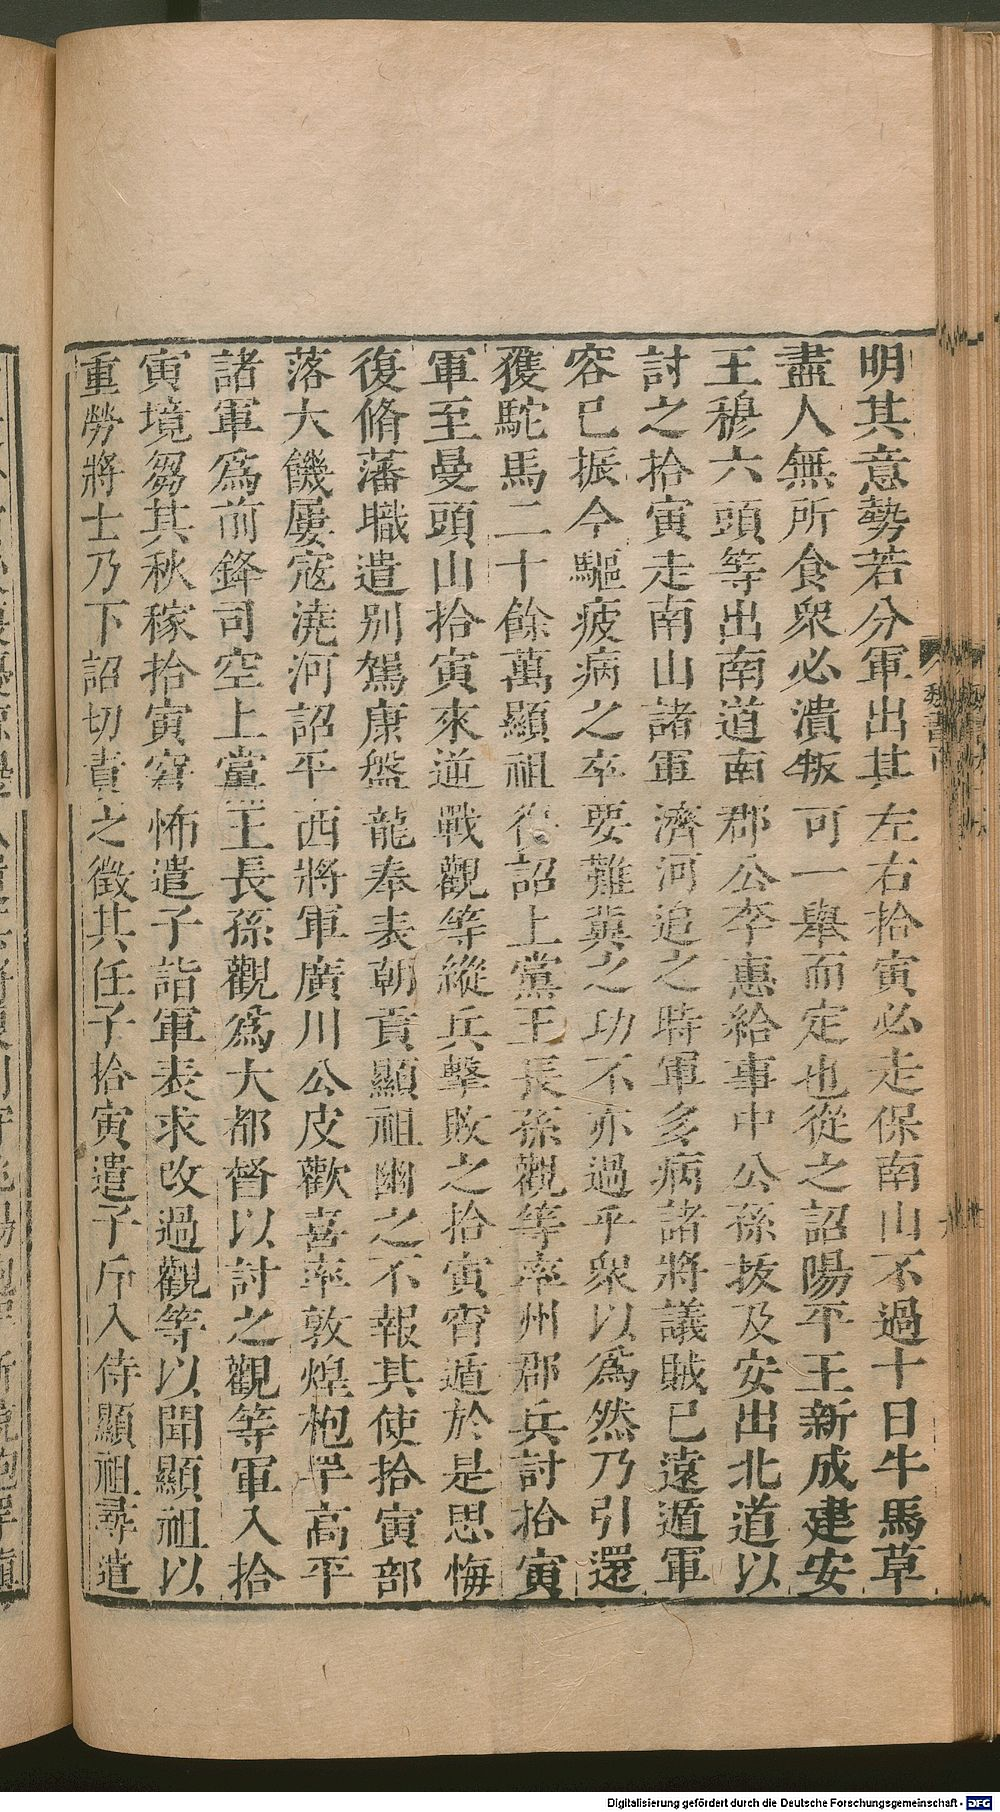 明其意勢若分軍出其左右拾寅必走保南山不過十日牛馬草
盡人無所食衆必潰叛可一舉而定也從之詔陽平王新成建安
王穆六頭等出南道南郡公李惠給事中公孫拔及安出北道以
討之拾寅走南山諸軍濟河追之時軍多病諸將議賊已遠遁軍
容已振今驅疲病之卒要難冀之功不亦過乎衆以爲然乃引還
獲駝馬二十餘萬顯祖復詔上黨王長孫觀等率州郡兵討拾寅
軍至曼頭山拾寅來逆戰觀等縱兵擊敗之拾寅宵遁於是思悔
復脩藩職遣别駕康盤龍奉表朝貢顯祖幽之不報其使拾寅部
落大饑屢寇澆河詔平西將軍廣川公皮歡喜率敦煌枹罕高平
諸軍爲前鋒司空上黨王長孫觀爲大都督以討之觀等軍入拾
寅境芻其秋稼拾寅窘怖遣子詣軍表求改過觀等以聞顯祖以
重勞將士乃下詔切責之徵其任子拾寅遣子斤入侍顯祖尋遣
Digitalisierung gefördert durch die Deutsche Forschungsgemeinschaft - DFG